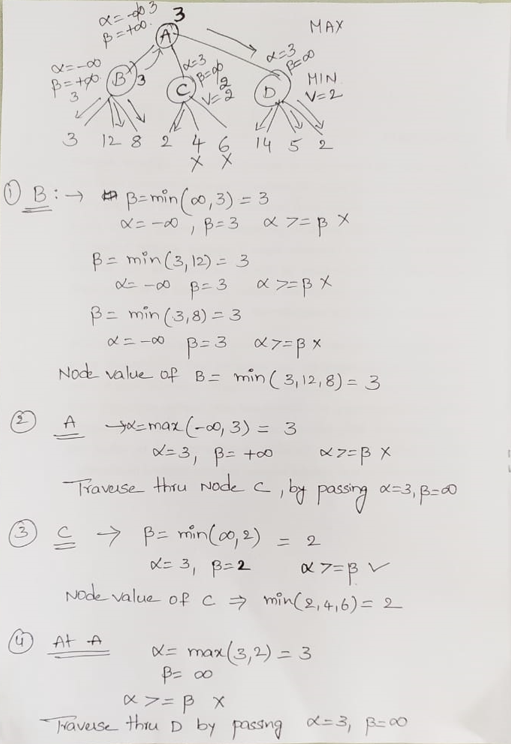 α=-∞ 3
3
β=+∞
A
MAX
α=-∞
β=+∞
3
B
3
α=3
β=∞
2
C
V=2
α=3
β=∞
D
MIN
V=2
3 12 8 2 4 6 14 5 2
X X
① B: → β=min(∞,3) = 3
α=-∞, β=3 α>=β X
β= min(3,12) = 3
α=-∞ β=3 α>=β X
β= min(3,8) = 3
α=-∞ β=3 α>=β X
Node value of B= min(3,12,8) = 3
② A →α=max(-∞,3) = 3
α=3, β=+∞ α>=β X
Traverse thru Node C, by passing α=3, β=∞
③ C → β= min(∞,2) = 2
α=3, β=2 α>=β ✓
Node value of C ⇒ min(2,4,6) = 2
④ At A
α= max(3,2) = 3
β= ∞
α>=β X
Traverse thru D by passng α=3, β=∞